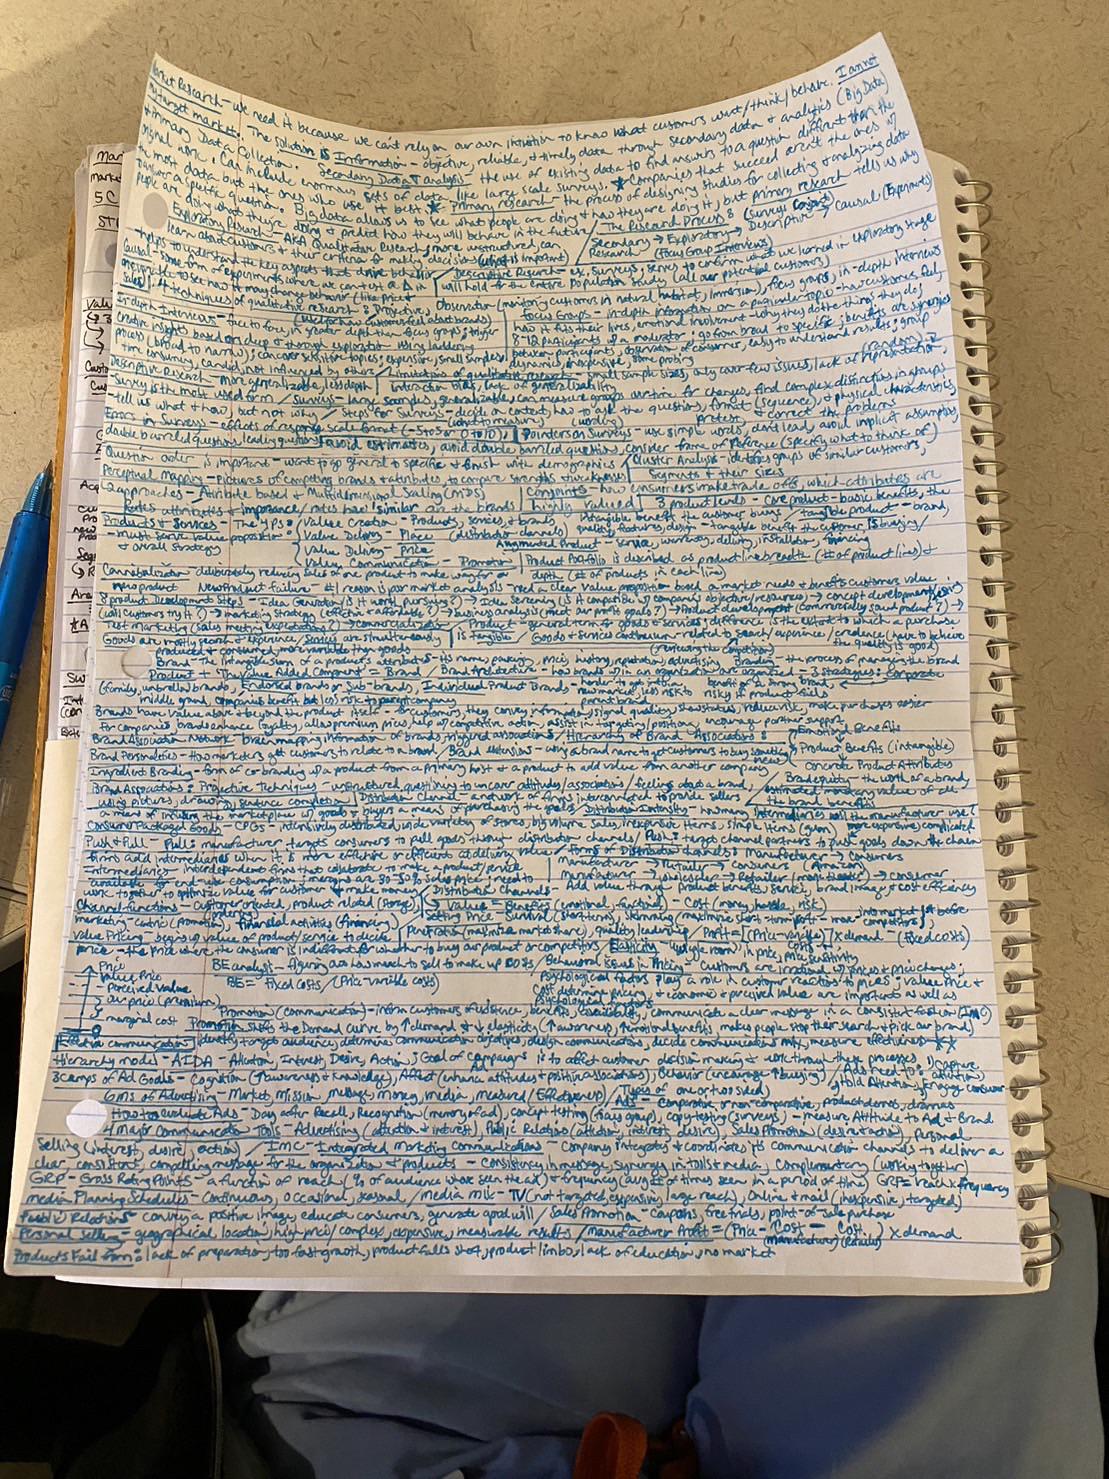 Market Research - we need it because we can't rely on our own intuition to know what customers want/think/behave. I am not
my target market. The solution is Information - objective, reliable, & timely data through secondary data & analytics (Big Data)
& Primary Data Collection. Secondary Data & analysis - the use of existing data to find answers to a question different than the
original work. Can include enormous sets of data like large scale surveys. ★ Companies that succeed aren't the ones w/
the most data but the ones who use it best ★ Primary research - the process of designing studies for collecting & analyzing data
to answer a specific question. Big data allows us to see what people are doing & how they are doing it, but primary research tells us why
people are doing what they're doing & predict how they will behave in the future / The Research Process: (surveys)
Exploratory Research - AKA Qualitative Research, more unstructured, can Secondary → Exploratory → Descriptive → Causal (Experiments)
learn about customers & their criteria for making decisions (what is important) Research (Focus Group Interviews)
- helps to understand the key aspects that drive behavior / Descriptive Research - ex. surveys, serves to confirm what we learned in exploratory stage
Causal - some form of experiments where we can test a Δ in will hold for the entire population study (all our potential customers)
one variable to see how it may change behavior (like price &
sales) / 4 techniques of qualitative research: Projective, Observation (monitoring customers in natural habitat, immersion), focus groups, in-depth interviews
(used for how customers feel about brands) Focus Groups - in-depth information on a particular topic - how customers feel,
In-depth Interviews - face to face, in greater depth than focus groups; trigger how it fits their lives, emotional involvement - why they do the things they do,
creative insights based on deep & thorough exploration using laddering 8-12 participants w/ a moderator; go from broad to specific; benefits are synergies
process (broad to narrow); can cover sensitive topics; expensive, small samples, between participants, observation of consumer, easy to understand results; group
time consuming, candid, not influenced by others / Limitations of qualitative research - small sample sizes, only cover few issues, lack of representation,
dynamics, inexpensive, some probing (random)
Descriptive Research - more generalizable, less depth / interaction bias, lack of generalizability
- Survey is the most used form / Surveys - large samples, generalizable, can measure groups overtime for changes, find complex distinctions in groups
- tell us what & how, but not why / Steps for Surveys - decide on content, how to ask the questions, format (sequence), & physical characteristics
(what to measure) (wording) pretest & correct the problems
Errors in Surveys - effects of response scale format (-5 to 5 or 0 to 10), Pointers on Surveys - use simple words, don't lead, avoid implicit assumptions,
double barreled questions, leading questions avoid estimates, avoid double barreled questions, consider frame of reference (specify what to think of)
Question order is important - want to go general to specific & finish with demographics / Cluster Analysis - identifies groups of similar customers,
Perceptual Mapping - pictures of competing brands & attributes, to compare strengths & weaknesses segments & their sizes
- 2 approaches - Attribute based & Multidimensional Scaling (MDS) Conjoints - how consumers make trade offs, which attributes are
Rates attributes & importance/rates how similar are the brands highly valued / 3 product levels - Core product - basic benefits, the
Products & Services - The 4 P's: Value Creation - Products, services, & brands intangible benefit the customer buys / tangible product - brand,
- must serve value proposition Value Delivery - Place (distribution channels) quality, features, design - tangible benefit the customer is buying /
& overall strategy Value Delivery - Price Augmented Product - service, warranty, delivery, installation, financing
Value Communication - Promotion Product Portfolio is described as product line breadth (# of product lines) &
Cannibalization - deliberately reducing sales of one product to make way for a depth (# of products in each line)
new product New Product failure - #1 reason is poor market analysis - need a clear value proposition based on market needs & benefits customers value
8 product Development Steps - Idea Generation (is it worth pursuing?) → Idea Screening (is it compatible w/ company objective/resources) → concept development
(will customers try it?) → marketing strategy (effective & affordable?) → business analysis (meet our profit goals?) → Product development (commercially sound product?) →
test marketing (sales meeting expectations?) → commercialization / Product - general term for goods & services; difference is the extent to which a purchase
Goods are mostly search & experience / Services are simultaneously is tangible / Goods & services continuum - related to search / experience / credence (have to believe
produced & consumed, more variable than goods (reviewing the competition) the quality is good)
Brand - The intangible sum of a product's attributes - its name, packaging, price, history, reputation, advertising Branding - the process of managing the brand
Product + The Value Added Component = Brand / Brand Architecture - how brands w/in an organization are organized - 3 strategies: Corporate
(family, umbrella brands), Endorsed brands or sub-brands, Individual Product Brands - harder to get into benefit of a strong brand,
middle ground, companies benefit but less risk to parent company new market, less risk to parent brand risky if product fails
Brands have value above & beyond the product itself - for customers, they convey information, signal quality, show status, reduce risk, make purchases easier
For companies brands enhance loyalty, allow premium prices, help w/ competitive action, assist in targeting/position, encourage partner support
Brand Association Network - brain mapping information of brands, triggered associations / Hierarchy of Brand Associations: Emotional Benefits
Brand Personalities - How marketers get customers to relate to a brand / Brand Extensions - using a brand name to get customers to buy something new Product Benefits (intangible)
Ingredient Branding - form of co-branding w/ a product from a primary host & a product to add value from another company Concrete Product Attributes
Brand Associations: Projective Techniques - unstructured questioning to uncover attitudes/associations/feelings about a brand, Brand equity - the worth of a brand,
using pictures, drawing, sentence completion / Distribution Channel - a network of firms interconnected to provide sellers estimated monetary value of all the brand benefits
a means of infusing the marketplace w/ goods & buyers a means of purchasing the goods / Distribution Intensity - how many intermediaries will the manufacturer use
Consumer Packaged Goods - CPGs - intensively distributed, wide variety of stores, big volume sales, inexpensive items, simple items (gum) more expensive, complicated
Push & Pull - Pull: manufacturer targets consumers to pull goods through distribution channels / Push: target channel partners to push goods down the chain
Firms add intermediaries when it is more effective or efficient at delivering value / Forms of Distribution channels: Manufacturer → consumers
Intermediaries - interdependent firms that collaborate to make a product/service manufacturer → Retailer → consumer (Amazon)
available for end-use consumption - margins are 30-50% sales price - need to manufacturer → wholesaler → Retailer → consumer
work together to optimize value for customer & make money / Distribution Channels - Add value through product benefits, service, brand image, & cost efficiency
Channel functions - Customer oriented, product related (storage), Value = Benefits (emotional, functional) - Cost (money, hassle, risk)
marketing-centric (promotion), financial activities (financing) Setting Price - Survival (short term), Skimming (maximize short-term profit - max into market first before competitors)
Value Pricing - begin w/ value of product/service to decide Penetration (maximize market share), quality leadership / Profit = [(Price - variable costs) x demand] - (fixed costs)
price - the price where the consumer is indifferent to whether to buy our product or competitors Elasticity - wiggle room in price, price sensitivity
Price BE analysis - figuring out how much to sell to make up costs / Behavioral issues in Pricing - customers are irrational w/ prices & price changes;
Value Price BE = Fixed Costs / (Price - variable costs) Psychological factors play a role in customer reactions to prices; value price &
perceived value Cost determine pricing & economic & perceived value are important as well as
our price (premium) Psychological factors
marginal cost Promotion (communication) - inform customers of existence, benefits, availability, communicate a clear message in a consistent fashion (IMC)
0 Promotion shifts the Demand curve by ↑ demand & ↓ elasticity (↑ awareness, ↑ emotional benefits, makes people stop their search & pick our brand)
Effective communication: identify target audience, determine communication objectives, design communications, decide communications mix, measure effectiveness ★★
Hierarchy model - AIDA - Attention, Interest, Desire, Action; Goal of campaigns is to affect customer decision making & work through these processes, 1) Capture attention,
3 camps of Ad Goals - Cognition (↑ awareness & knowledge), Affect (enhance attitudes & positive associations), Behavior (encourage ↑ buying) / Ads need to: Hold Attention, Engage consumer
6 Ms of Advertising - Market, mission, message, money, media, measured (Effectiveness) / Ads - Types of one or two sided,
How to evaluate Ads - Day after Recall, Recognition (memory of ad), concept testing (focus group), copy testing (surveys) - measure Attitude to Ad & Brand
Comparative or non-comparative, product demos, dramas
4 Major Communication Tools - Advertising (attention & interest), Public Relations (attention, interest, desire), Sales Promotion (desire & action), Personal
Selling (interest, desire, action) / IMC - Integrated Marketing Communications - Company integrates & coordinates its communication channels to deliver a
clear, consistent, compelling message for the organization & products - Consistency in message, synergy in tools & media, complementary (working together)
GRP - Gross Rating Points - a function of reach (% of audience who've seen the ad) & frequency (avg # of times seen in a period of time) GRP = reach x frequency
Media Planning Schedules - Continuous, occasional, seasonal / media mix - TV (not targeted, expensive, large reach), Online & mail (inexpensive, targeted)
Public Relations - convey a positive image, educate consumers, generate goodwill / Sales Promotion - Coupons, free trials, point-of-sale purchase
Personal Selling - geographical, location, high price/complex, expensive, measurable results / manufacturer Profit = (Price - Cost (manufacturer) - Cost (retailer)) x demand
Products Fail from: lack of preparation, too fast growth, product falls short, product limbo, lack of education, no market